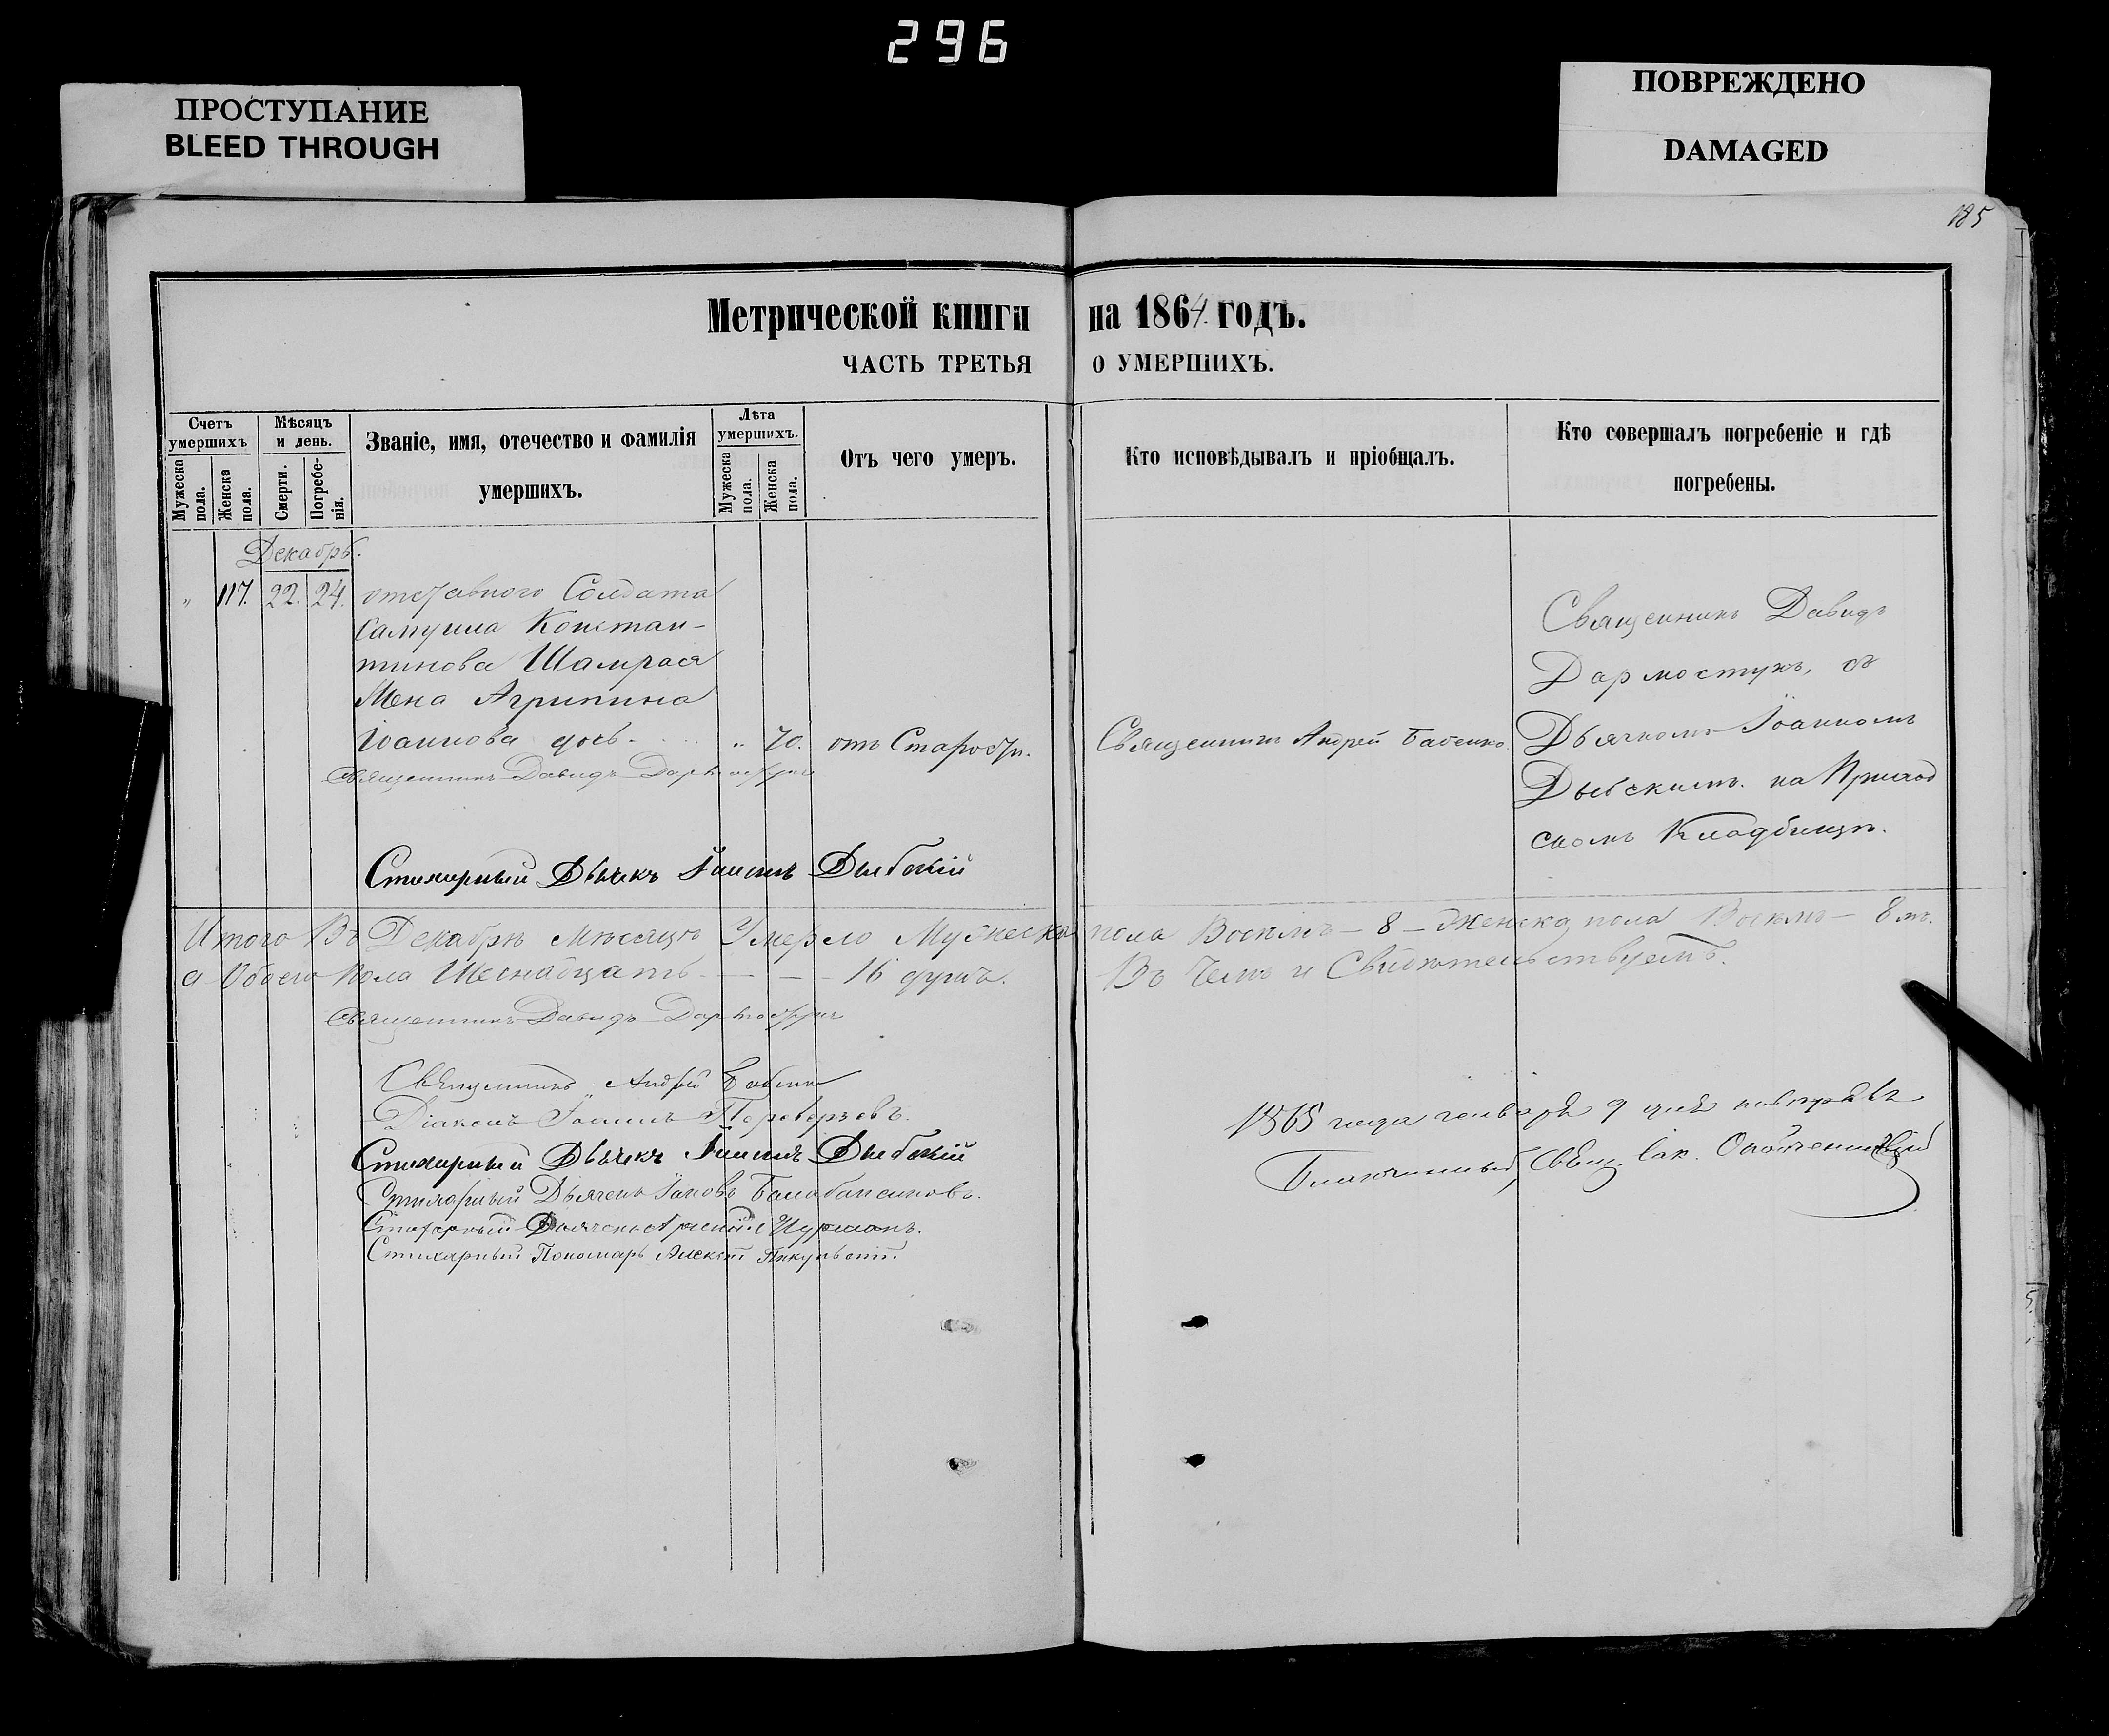 296
ПРОСТУПАНИЕ
BLEED THROUGH
ПОВРЕЖДЕНО
DAMAGED
185
Метрической книги на 1864. годъ.
ЧАСТЬ ТРЕТЬЯ О УМЕРШИХЪ.
Счетъ умершихъ
Мужеска пола.
Женска пола.
Мѣсяцъ и день.
Смерти.
Погребенія.
Званіе, имя, отечество и фамилія
умершихъ.
Лѣта умершихъ.
Мужеска пола.
Женска пола.
Отъ чего умеръ.
Кто исповѣдывалъ и пріобщалъ.
Кто совершалъ погребеніе и гдѣ
погребены.
Декабрь.
„ 117. 22. 24. отставного Солдата
Самуила Констан-
тинова Шамрая
Жена Агрипина
Іоаннова дочь. „ 70. отъ Старости. Священникъ Андрей Бабенко
Священникъ Давидъ
Дармостукъ, съ
Дьячкомъ Іоанномъ
Дыбскимъ. на Приход
скомъ Кладбищѣ.
Священникъ Давидъ Дармостукъ
Стихарный Дьячекъ Іоаннъ Дыбскій
Итого Въ Декабрѣ Мѣсяцѣ Умерло Мужеска пола Восемь — 8 — Женска пола Восемь — 8 мь.
а Обоего пола Шеснадцать — — — 16 душъ. Въ Чемъ и Свидѣтельствуемъ.
Священникъ Давидъ Дармостукъ
Священникъ Андрей Бабенко
Діаконъ Іоаннъ Переверзевъ.
Стихарный Дьячекъ Іоаннъ Дыбскій
Стихарный Дьячекъ Іаковъ
Стихарный Дьячекъ
Стихарный Пономарь Алексѣй
1865 года генваря 9 дня
Благочинный, Свящ.